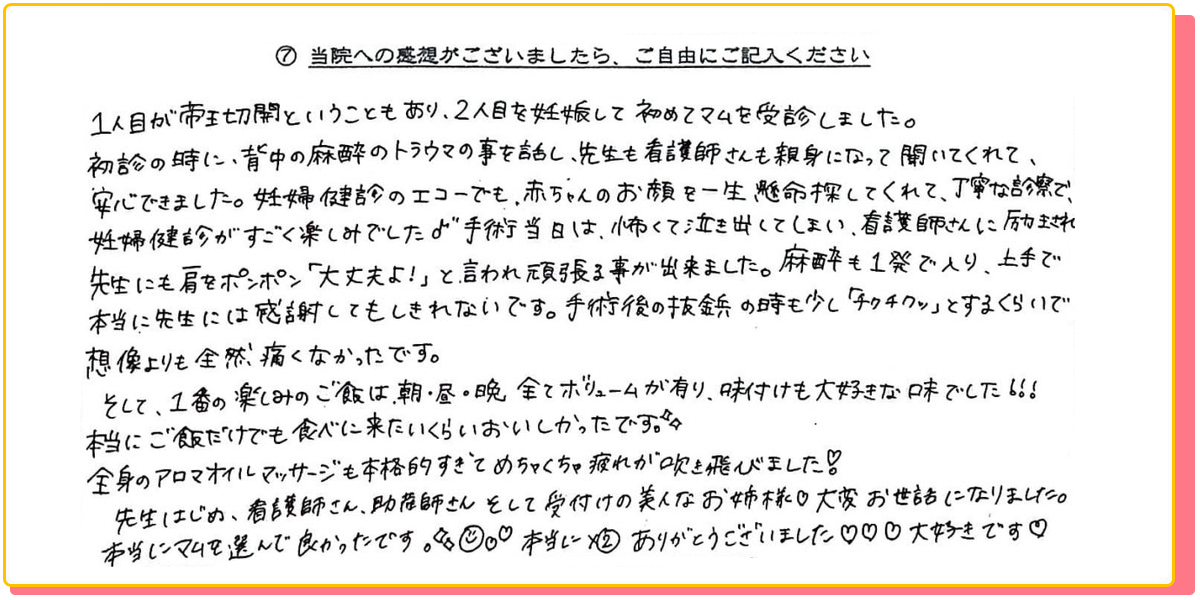 ⑦ 当院への感想がございましたら、ご自由にご記入ください
1人目が帝王切開ということもあり、2人目を妊娠して初めてマムを受診しました。
初診の時に、背中の麻酔のトラウマの事を話し、先生も看護師さんも親身になって聞いてくれて、
安心できました。妊婦健診のエコーでも、赤ちゃんのお顔を一生懸命探してくれて、丁寧な診察で、
妊婦健診がすごく楽しみでした♂゛手術当日は、怖くて泣き出してしまい、看護師さんに励まされ
先生にも肩をポンポン「大丈夫よ!」と言われ頑張る事が出来ました。麻酔も1発で入り、上手で
本当に先生には感謝してもしきれないです。手術後の抜鈎の時も少し「チクチクッ」とするくらいで
想像よりも全然、痛くなかったです。
そして、1番の楽しみのご飯は、朝・昼・晩、全てボリュームが有り、味付けも大好きな味でした!!!
本当にご飯だけでも食べに来たいくらいおいしかったです。✨
全身のアロマオイルマッサージも本格的すぎてめちゃくちゃ疲れが吹き飛びました♡!
先生はじめ、看護師さん、助産師さんそして受付けの美人なお姉様♡大変お世話になりました。
本当にマムを選んで良かったです。✨☺。♡ 本当に×② ありがとうございました♡♡♡大好きです♡